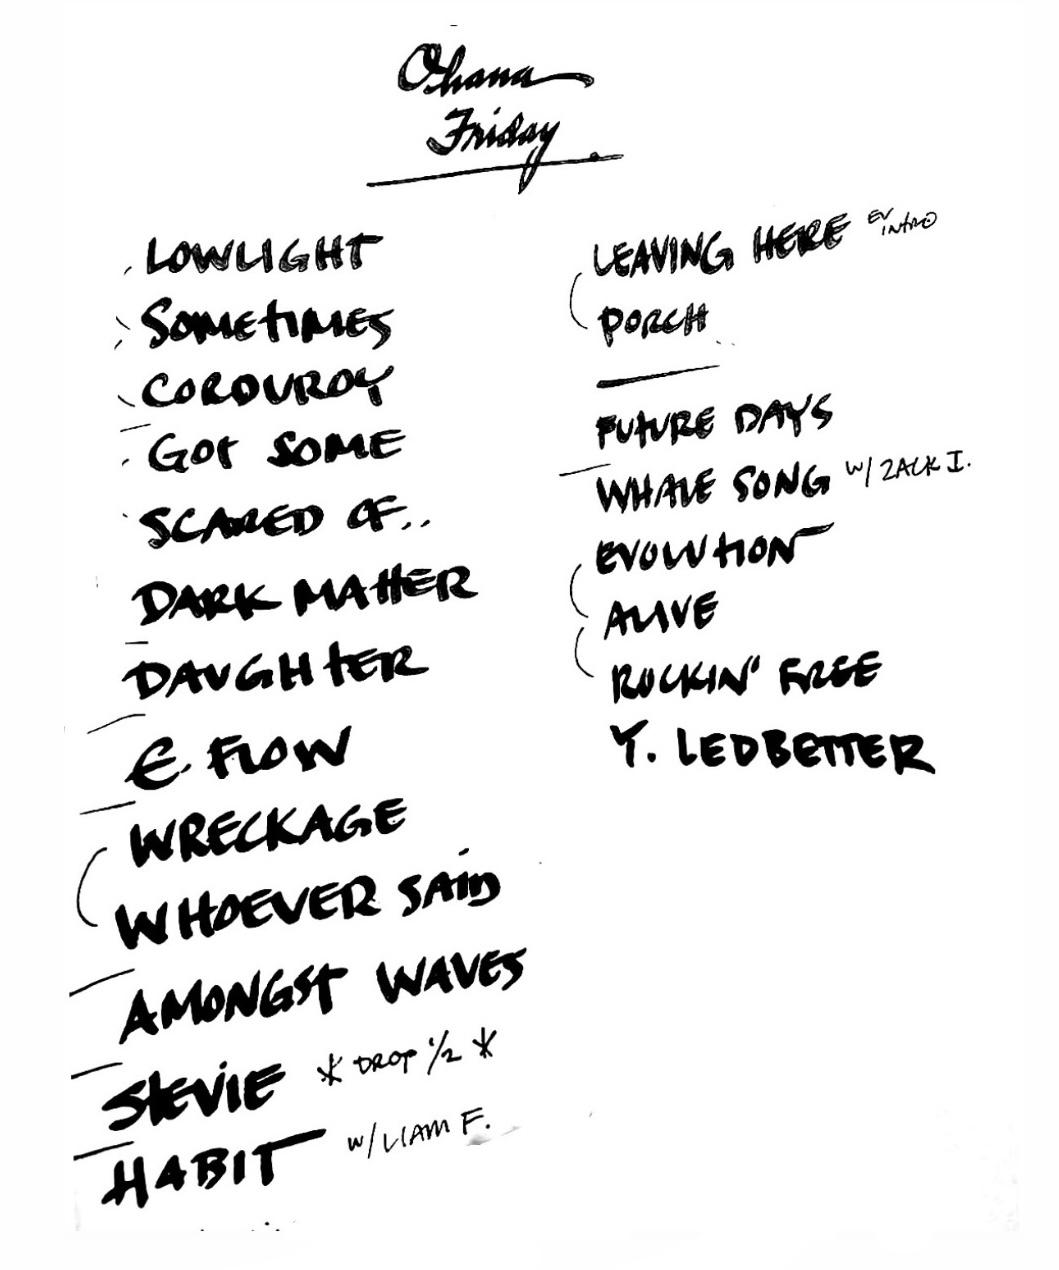 Ohana
Friday.
LOWLIGHT
SOMETIMES
CORDUROY
GOT SOME
SCARED OF..
DARK MATTER
DAUGHTER
E. FLOW
WRECKAGE
WHOEVER SAID
AMONGST WAVES
STEVIE * DROP 1/2 *
HABIT W/ LIAM F.
LEAVING HERE EV INTRO
PORCH
FUTURE DAYS
WHALE SONG W/ ZACK I.
EVOLUTION
ALIVE
ROCKIN' FREE
Y. LEDBETTER